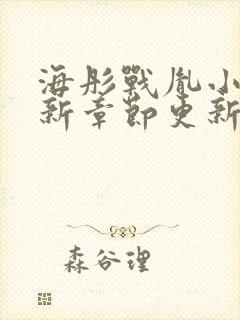 海彤戰胤小
新章節更新
森谷理